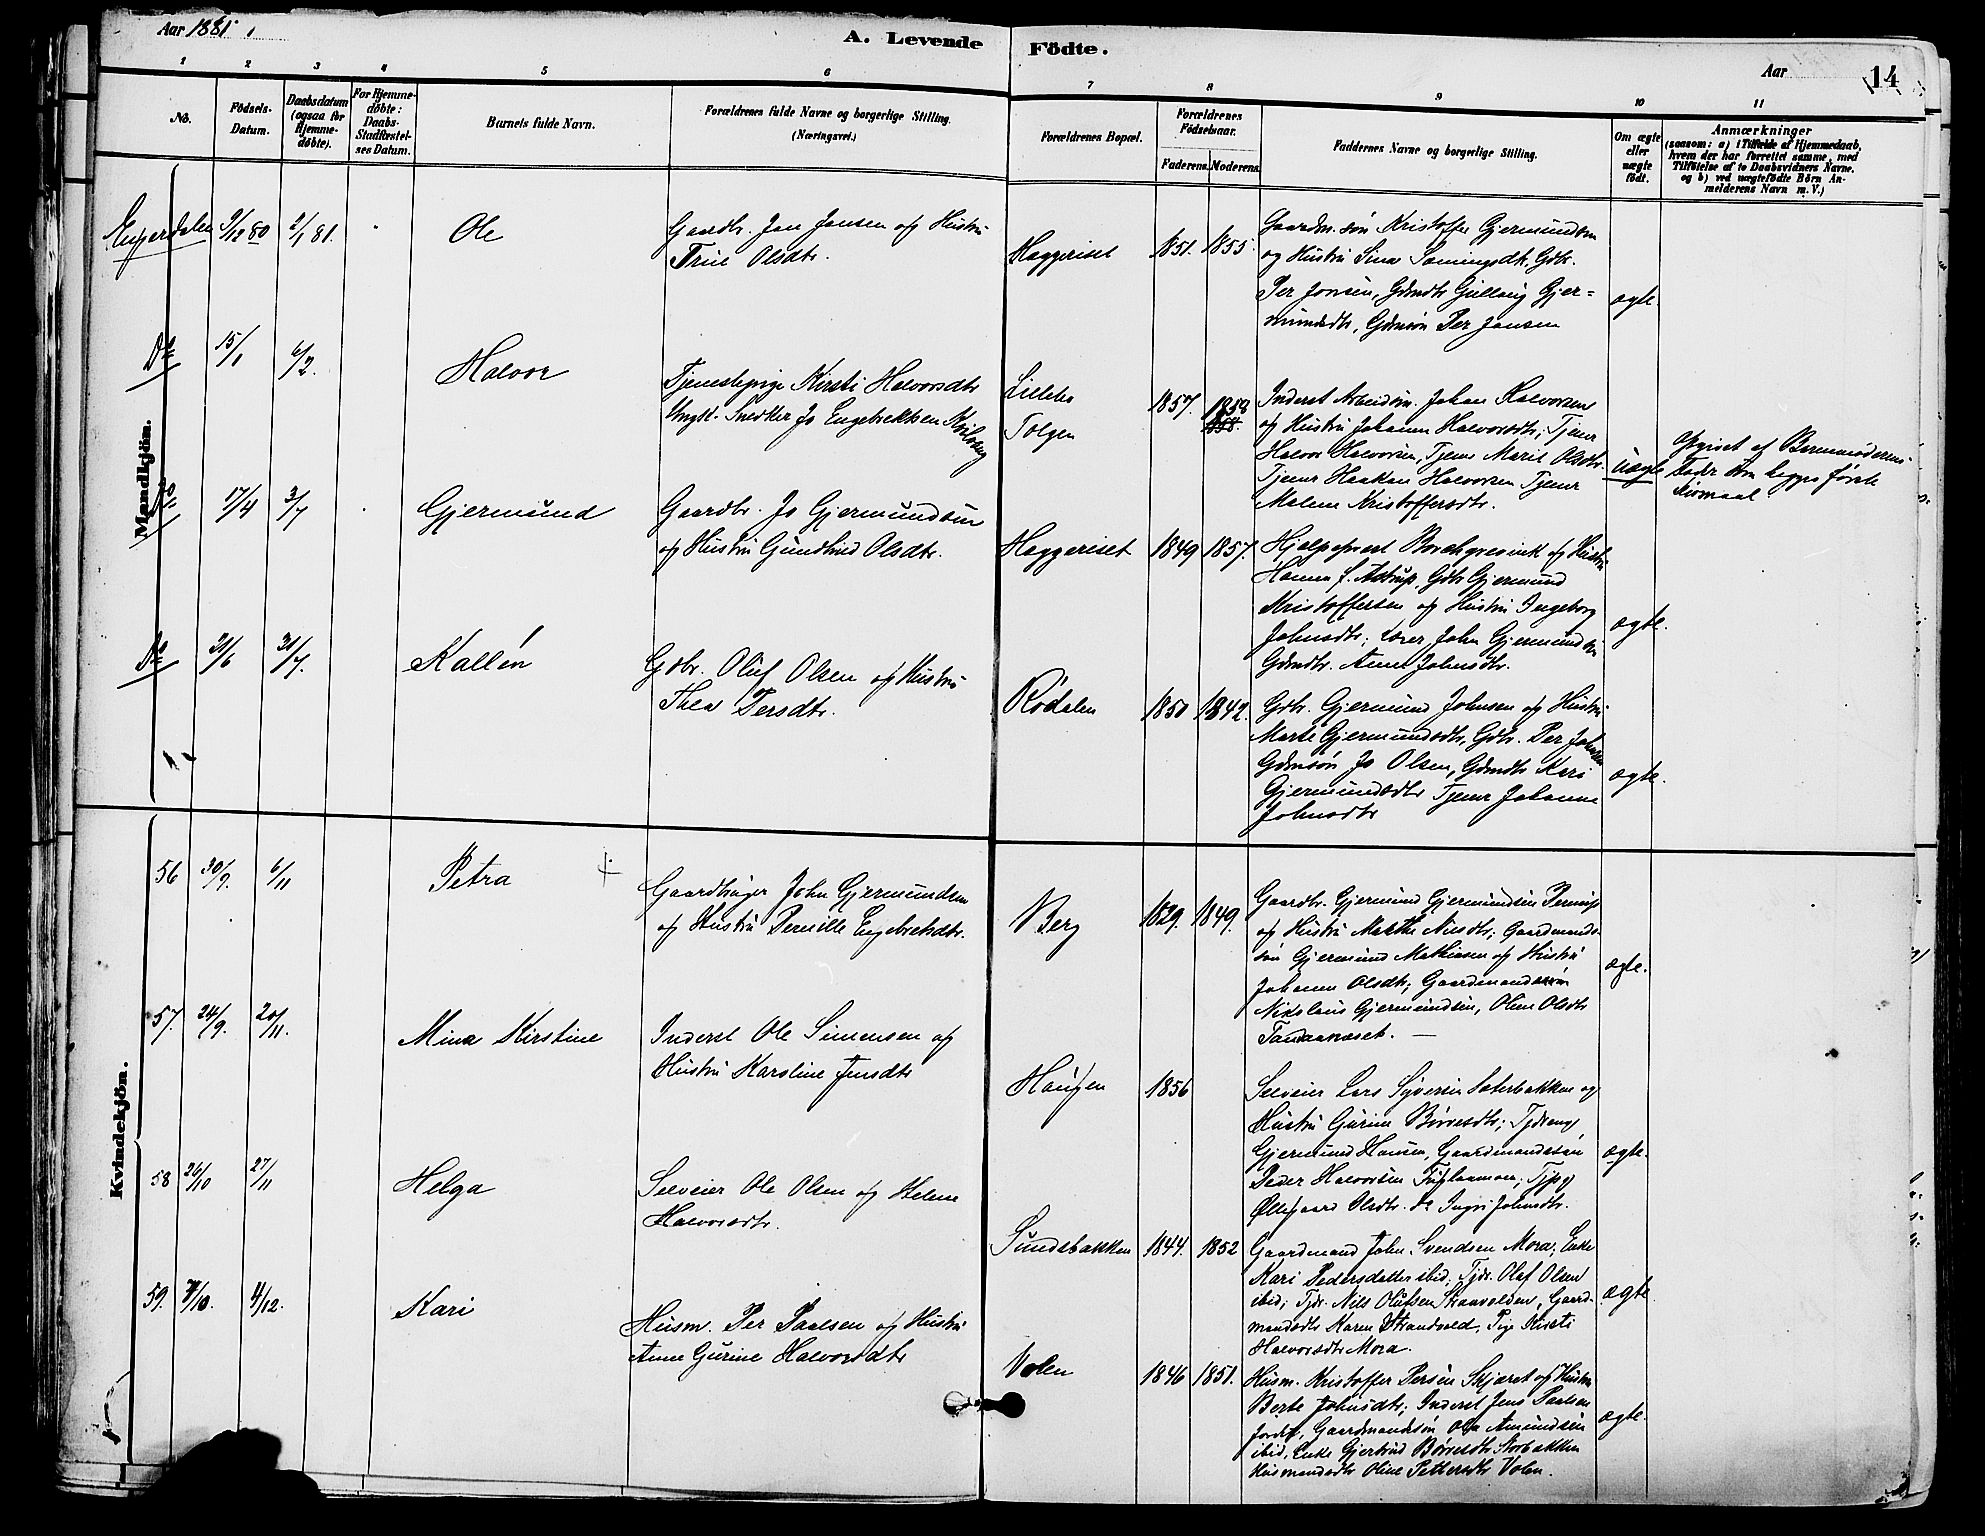 Aar 1881.
A. Levende Födte.
Aar
14
1 2 3 4 5 6 7 8 9 10 11
No.
Födsels-
Datum.
Daabsdatum
(ogsaa for
Hjemme-
døbte).
For Hjemme-
døbte:
Daabs-
Stadfæstel-
ses Datum.
Barnets fulde Navn.
Forældrenes fulde Navne og borgerlige Stilling.
(Næringsvei.)
Forældrenes Bopæl.
Forældrenes
Födselsaar.
Faderens. Moderens.
Faddernes Navne og borgerlige Stilling.
Om ægte
eller
uægte
födt.
Anmærkninger
(saasom: a) i Tilfælde af Hjemmedaab,
hvem der har forrettet samme, med
Tilföielse af to Daabsvidners Navne.
og b) ved uægtefödte Börn An-
melderens Navn m. V.)
Mandkjön.
Engerdalen 9/12 80 2/1 81. Ole
Gaardbr. Jon Jonsen og Hustru
Trine Olsdtr.
Haggeriset 1851. 1855.
Gaardm.søn Kristoffer Gjermundsen
og Hustru Sina Sæmingsdtr, Gdbr.
Per Jonsen, Gdmdtr Gullaug Gjer-
mundsdtr, Gdmsøn Per Jonsen
ægte
Do 15/1 6/2. Halvor
Tjenestepige Kirsti Halvorsdtr
Ungk. Snedker Jo Engebrektsen
Lillebo
Tolgen
1857. 1858
Inderst Johan Halvorsen
og Hustru Johanne Halvorsdtr; Tjener
Halvor Halvorsen, Tjener Marit Olsdtr.
Tjener Haakon Halvorsen Tjener
Malene Kristoffersdtr.
uægte
Opgivet af Barnemoderens
Fader som begges første
Leiermaal
Do 17/4 3/7 Gjermund
Gaardbr. Jo Gjermundsen
og Hustru Gundhild Olsdtr.
Haggeriset 1849 1857.
Hjælpeprest Borchgrevink og Hustru
Hanna f. Astrup, Gdbr Gjermund
Kristoffersen og Hustru Ingeborg
Johnsdtr; Lærer John Gjermundsen
Gdmdtr. Anne Johnsdtr.
ægte.
Do 21/6 31/7. Kallên
Gdbr. Oluf Olsen og Hustru
Thea Persdtr.
Rödalen 1850 1842.
Gdbr. Gjermund Johnsen og Hustru
Marte Gjermundsdtr, Gdbr. Per Johnsen
Gdmsøn Jo Olsen, Gdmdtr Kari
Gjermundsdtr Tjener Johanne
Johnsdtr
ægte.
Kvindekjön.
56 30/9. 6/11 Petra
Gaardbruger John Gjermundsen
og Hustru Pernille Engebretsdtr.
Berg 1829. 1849.
Gaardbr. Gjermund Gjermundsen
og Hustru Marthe Nilsdtr; Gaardmands-
søn Gjermund Mathiesen og Hustru
Johanne Olsdtr; Gaardmandssøn
Nikolaus Gjermundsen, Olene Olsdtr
ægte.
57. 24/9. 20/11. Mina Kirstine
Inderst Ole Simensen og
Hustru Karoline Jensdtr
Haugen 1856
Selveier Lars Syversen Sæterbakken og
Hustru Gurine Børresdtr; Tjdreng
Gjermund Hansen, Gaardmandssøn
Peder Halvorsen Tjpg
Øllegaard Olsdtr. do Ingri Johnsdtr.
ægte.
58 26/10 27/11 Helga
Selveier Ole Olsen og Helene
Halvorsdtr.
Sundsbakken 1844. 1852
Gaardmand John Svendsen Mora; Enke
Kari Pedersdatter ibid; Tjdr. Olaf Olsen
ibid; Tjdr. Nils Olufsen Strandvolden, Gaard-
mandsdtr Karen Strandvold, Pige Kirsti
Halvorsdtr Mora.
ægte.
59. 7/10. 4/12. Kari
Husm. Per Paalsen og Hustru
Anne Gurine Halvorsdtr
Volen 1846 1851.
Husm. Kristoffer Persen Skjæret og Hustru
Berte Johnsdtr; Inderst Jens Paalsen
Gaardmandssøn Ole Amundsen
ibid, Enke Gjertrud Børresdtr Storbakken
Husmandsdtr Oline Pettersdtr Volen.
ægte.